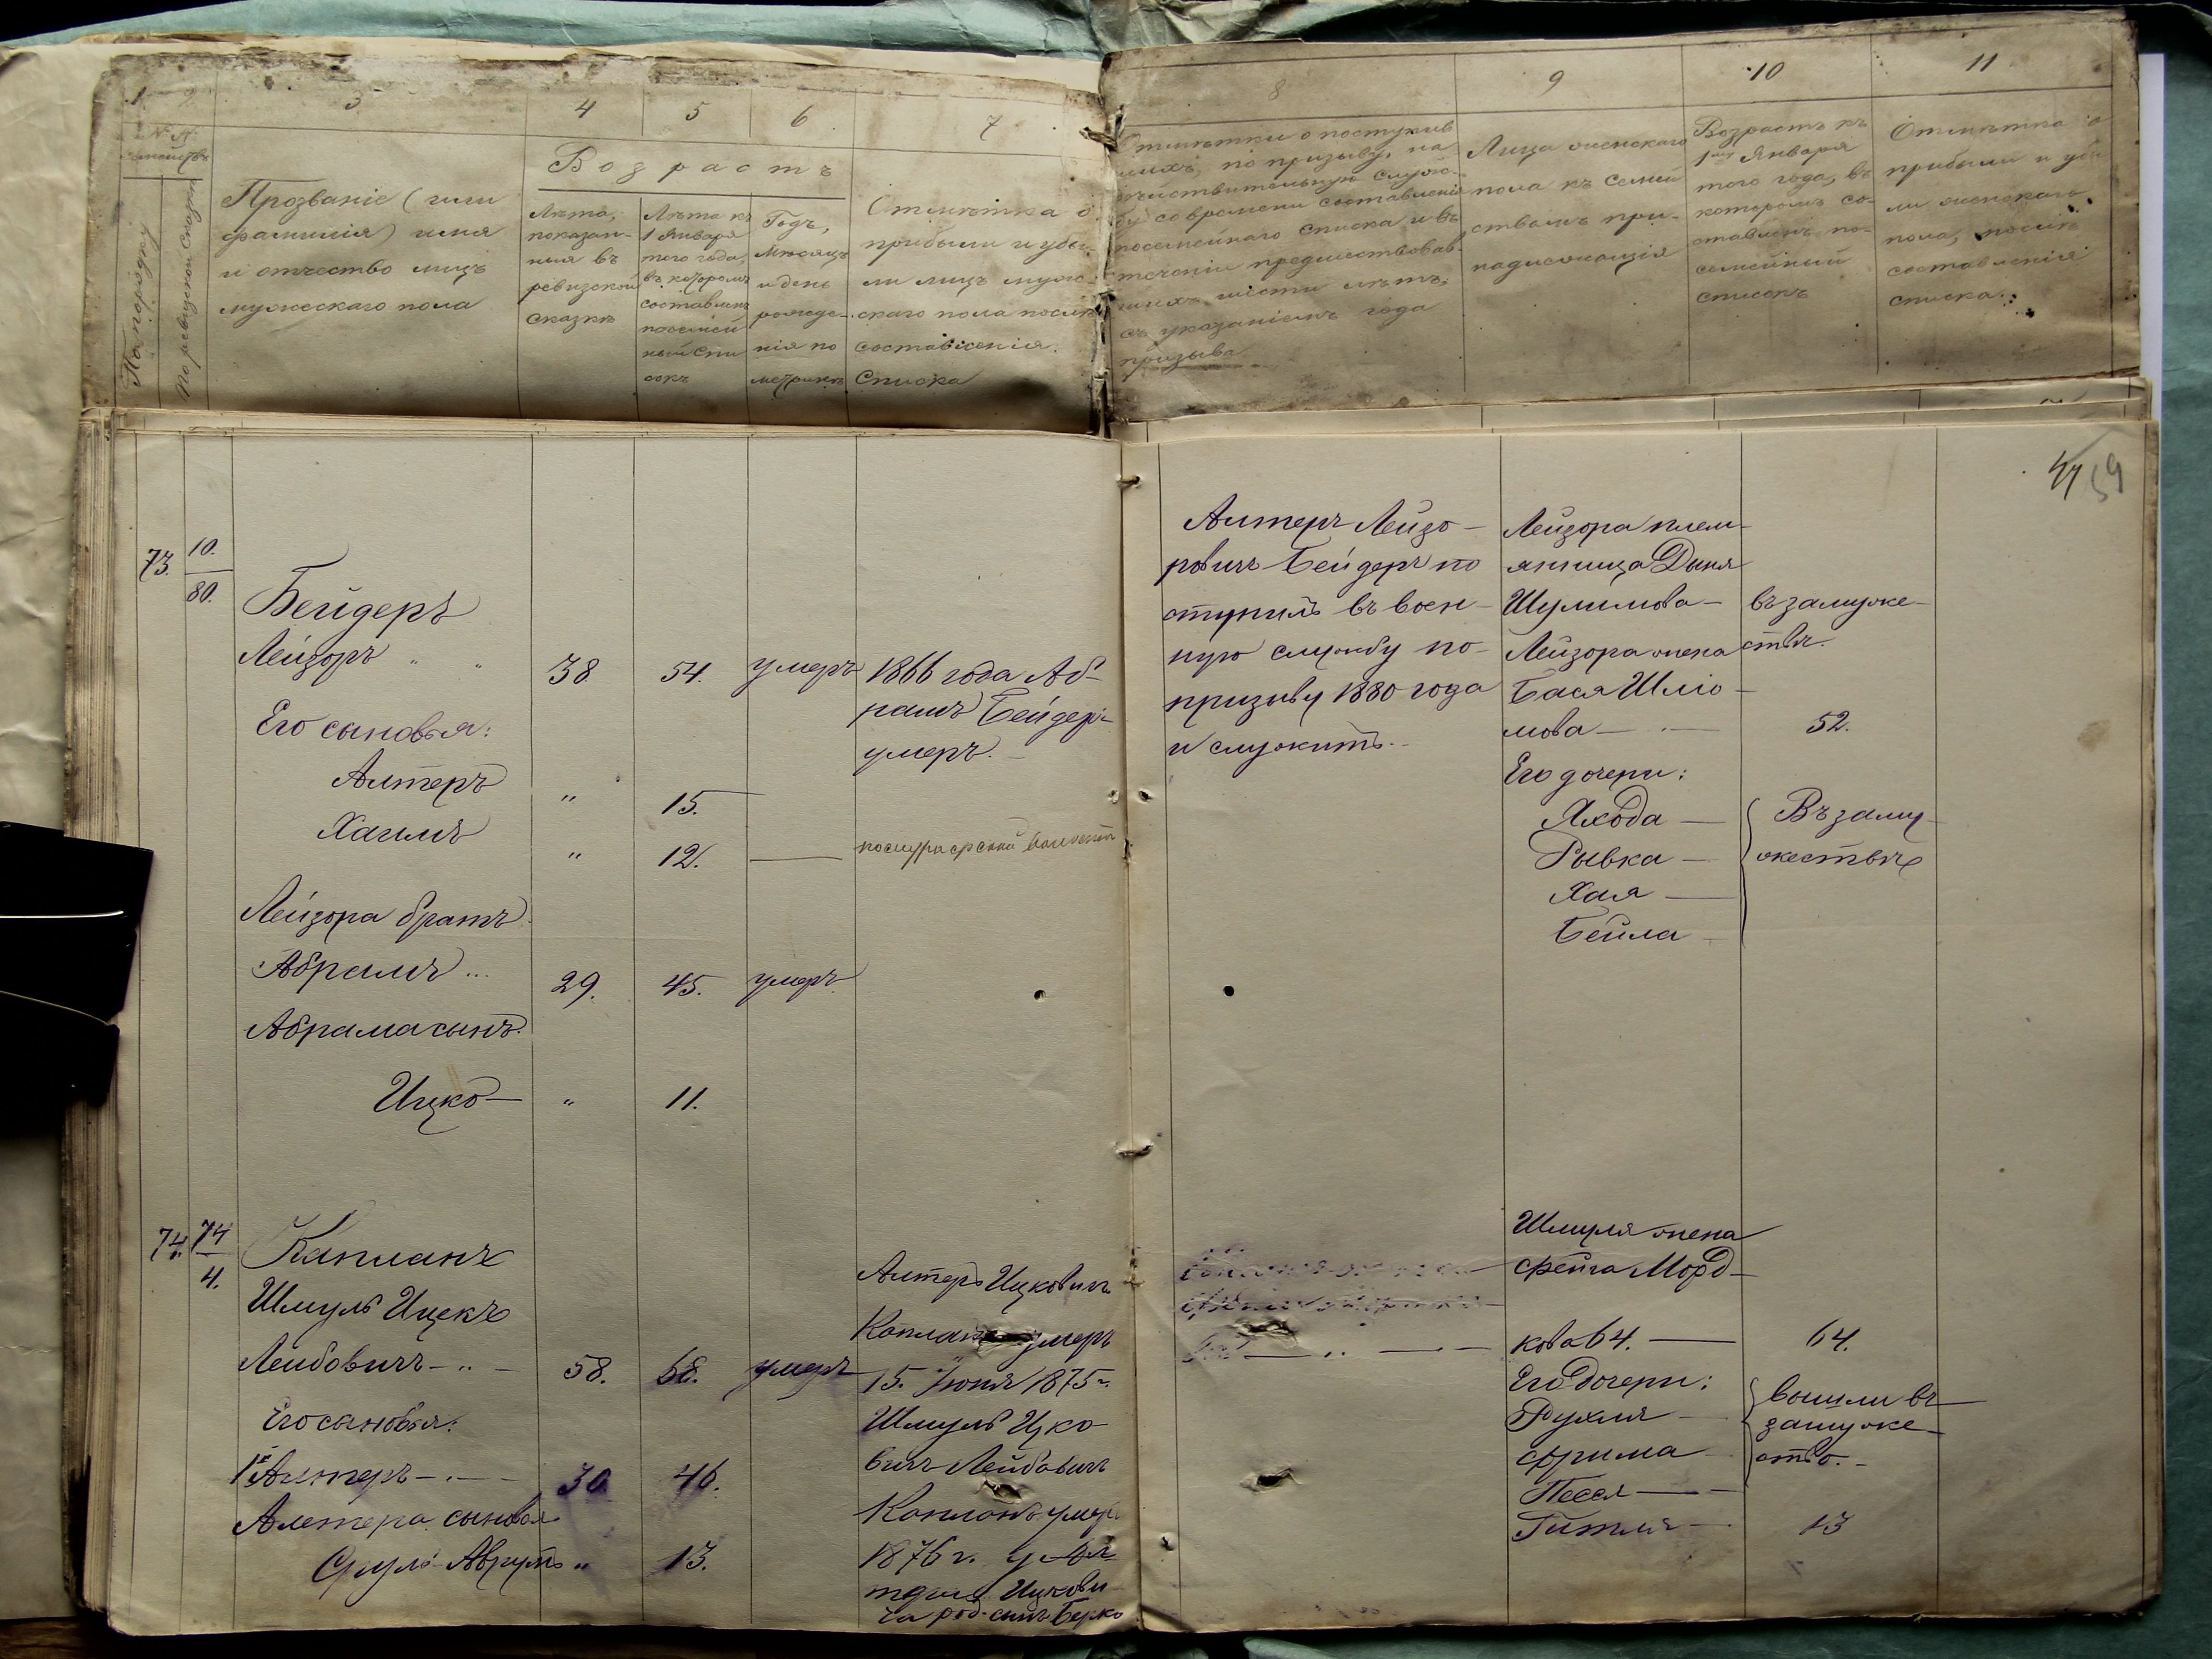 1
3
4
5
6
7
8
9
10
11
№№
семействъ
По порядку
По ревизской сказкѣ
Прозваніе (или
фамилія) имя
и отчество лицъ
мужескаго пола
Возрастъ
Лѣта,
показан-
ныя въ
ревизской
сказкѣ
Лѣта къ
1 Января
того года,
въ которомъ
составленъ
посемей
ный спи
сокъ
Годъ,
мѣсяцъ
и день
рожде-
нія по
метрикѣ
Отмѣтка о
прибыли и убы-
ли лицъ муже-
скаго пола послѣ
составленія
списка
Отмѣтки о поступив
шихъ, по призыву, на
дѣйствительную служ-
бу со времени составленія
посемейнаго списка и въ
теченіи предшествовав-
шихъ шести лѣтъ,
съ указаніемъ года
призыва
Лица женскаго
пола къ семей
ствамъ при-
надлежащія
Возрастъ къ
1му Января
того года, въ
которомъ со-
ставленъ по-
семейный
списокъ
Отмѣтка о
прибыли и убы
ли женскаго
пола, послѣ
составленія
списка.
59
73.
10.
80.
Бейдеръ
Лейзоръ " "
38.
54.
умеръ
1866 года Аб-
рамъ Бейдеръ
умеръ.
Его сыновья:
Алтеръ
"
15.
Хаимъ
"
12.
Лейзора братъ
Абрамъ ...
29.
45.
умеръ
Абрама сынъ.
Ицко —
"
11.
Алтеръ Лейзо-
ровичъ Бейдеръ по
ступилъ въ воен-
ную службу по-
призыву 1880 года
и служитъ.
Лейзора плем-
янница Диня
Шулимова —
въ замуже-
ствѣ.
Лейзора жена
Бася Шліо-
мова —
52.
Его дочери:
Яхода —
Рывка —
Хая —
Бейла
Въ заму-
жествѣ
74.
74
4.
Капланъ
Шмуль Ицекъ
Лейбовичъ - " -
58.
68.
умеръ
Его сыновья:
1й Алтеръ - . -
30
46.
Алтера сыновья
Сруль Аврумъ "
13.
Алтеръ Ицковичъ
Капланъ умеръ
15. Іюня 1875 г.
Шмуль Ицко-
вичъ Лейбовичъ
Капланъ умеръ
1876 г. у Ал-
тера Ицкови-
ча род. сынъ Берко
Шмуля жена
Фейга Морд-
кова 64. —
64.
Его дочери:
Рухля —
Фрима
Песся —
вышли въ
замуже-
ство.
Гитля —
13